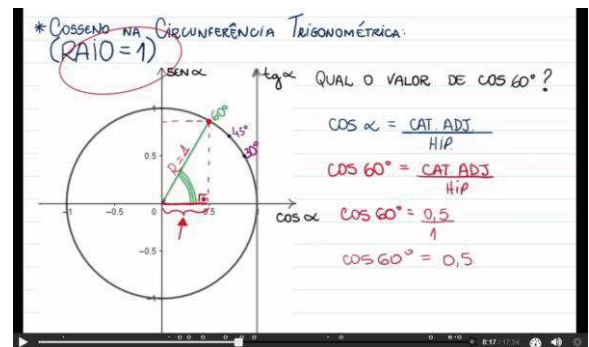 * COSSENO NA CIRCUNFERÊNCIA TRIGONOMÉTRICA:
(RAIO = 1)
SEN α
tg α
QUAL O VALOR DE COS 60° ?
1
60°
45°
30°
0.5
R=1
-1
-0.5
0
0.5
1
COS α
-0.5
-1
COS α = CAT. ADJ.
HIP.
COS 60° = CAT. ADJ
HIP
COS 60° = 0,5
1
COS 60° = 0,5
8:17 / 17:34